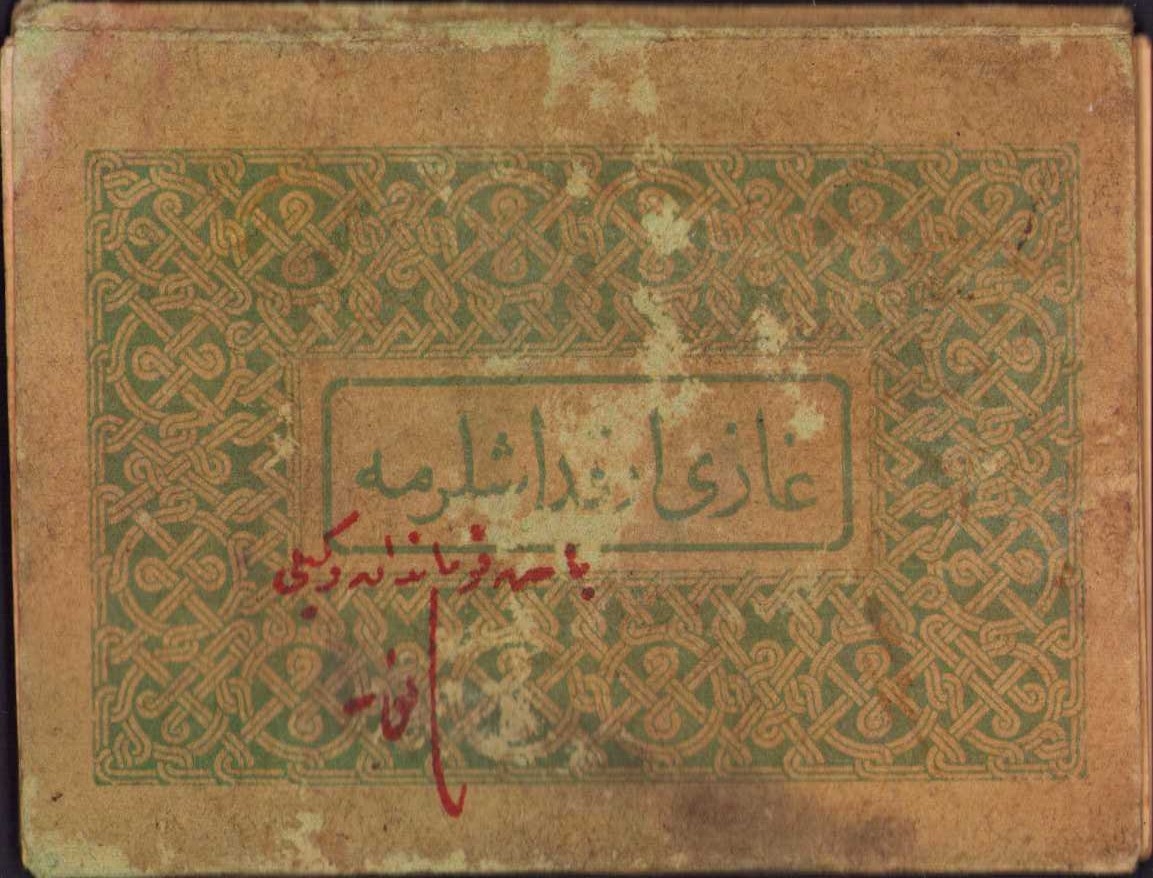 غازی ارقداشلرمه
باش قوماندان وكیلی
انور